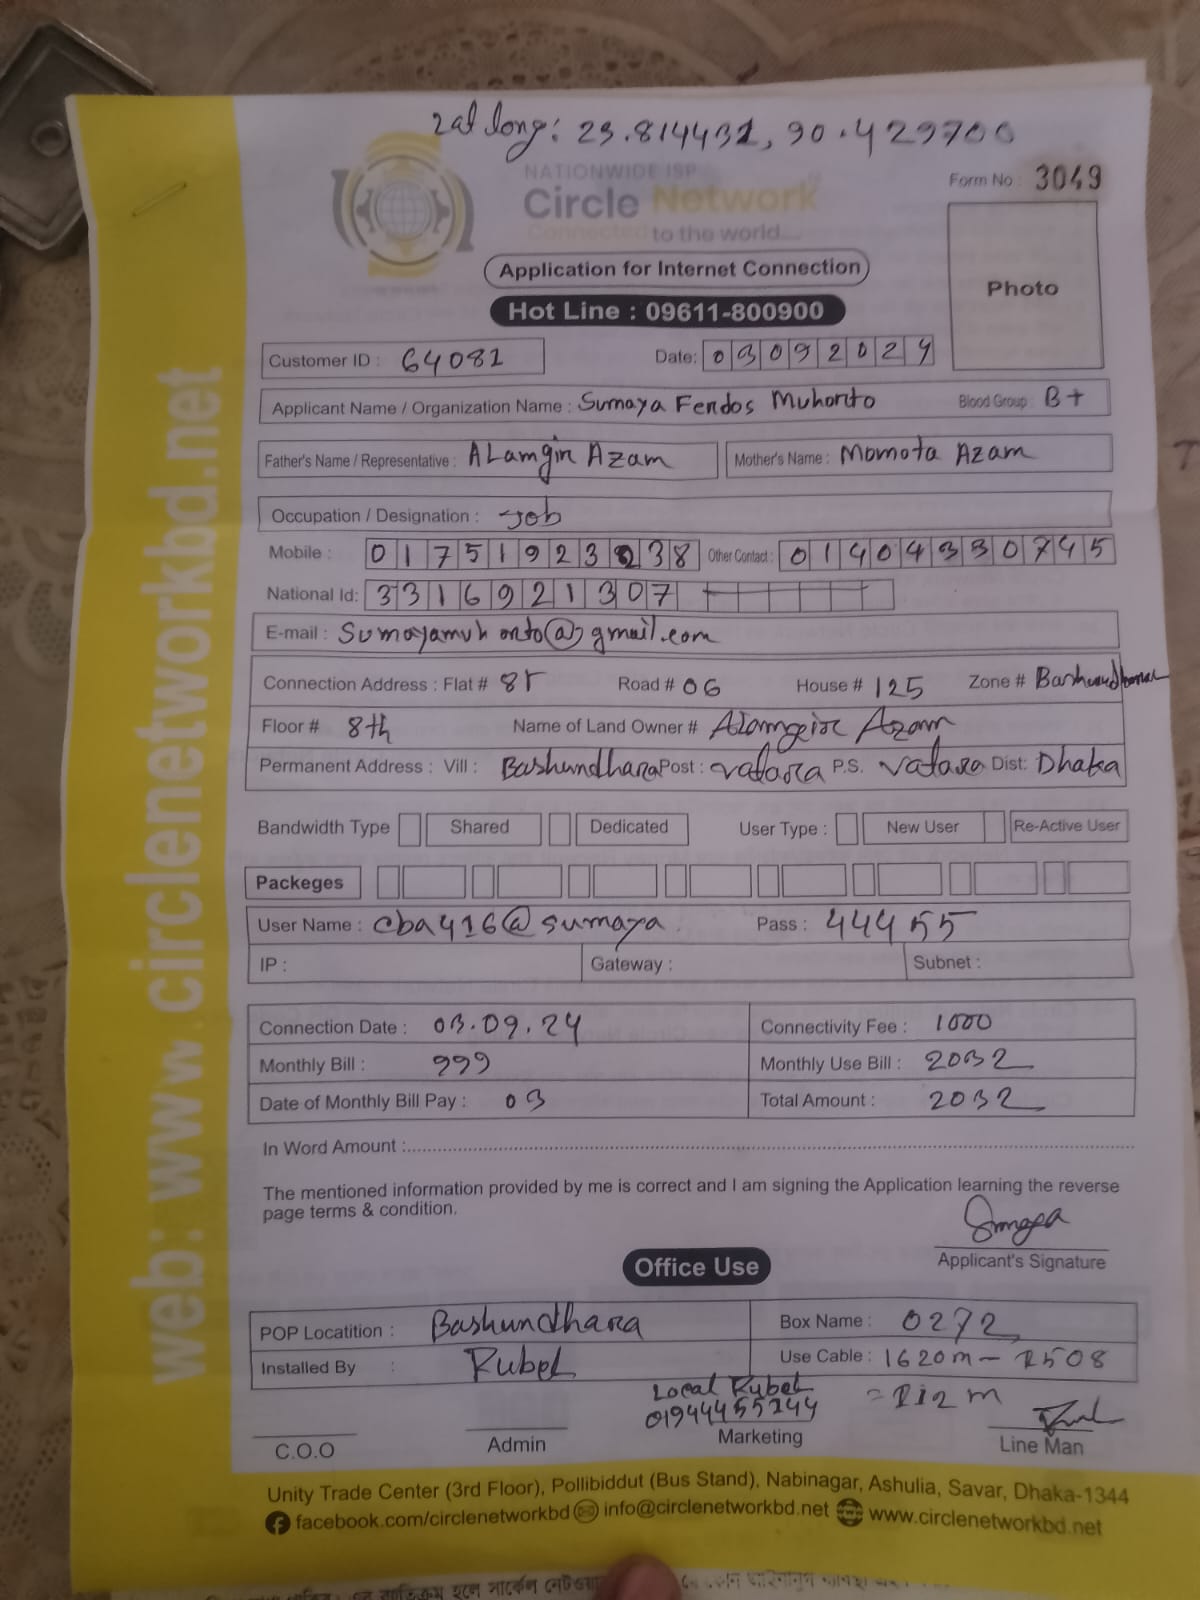 Lat long: 23.814431, 90.429700
NATIONWIDE ISP
Circle Network
Connected to the world...
Form No : 3049
Application for Internet Connection
Hot Line : 09611-800900
Photo
Customer ID : 64081
Date: 03092024
Applicant Name / Organization Name : Sumaya Ferdos Muhorto
Blood Group : B+
Father's Name / Representative : ALamgir Azam
Mother's Name : Momota Azam
Occupation / Designation : Job
Mobile : 01751923238 Other Contact : 01404330745
National Id: 3316921307
E-mail : Sumayamuhorto@gmail.com
Connection Address : Flat # 8r Road # 06 House # 125 Zone # Bashundhara
Floor # 8th Name of Land Owner # Alamgeir Azam
Permanent Address : Vill : Bashundhara Post : vatara P.S. vatara Dist: Dhaka
Bandwidth Type Shared Dedicated User Type : New User Re-Active User
Packeges
User Name : cba416@sumaya Pass : 44455
IP : Gateway : Subnet :
Connection Date : 03.09.24 Connectivity Fee : 1000
Monthly Bill : 999 Monthly Use Bill : 2032
Date of Monthly Bill Pay : 03 Total Amount : 2032
In Word Amount :
The mentioned information provided by me is correct and I am signing the Application learning the reverse
page terms & condition.
Sumaya
Applicant's Signature
Office Use
POP Locatition : Bashundhara Box Name : 0272
Installed By : Rubel Use Cable : 1620m - 1508
= 112 m
Local Rubel
01944455144
C.O.O Admin Marketing Line Man
Unity Trade Center (3rd Floor), Pollibiddut (Bus Stand), Nabinagar, Ashulia, Savar, Dhaka-1344
facebook.com/circlenetworkbd info@circlenetworkbd.net www.circlenetworkbd.net
web: www.circlenetworkbd.net